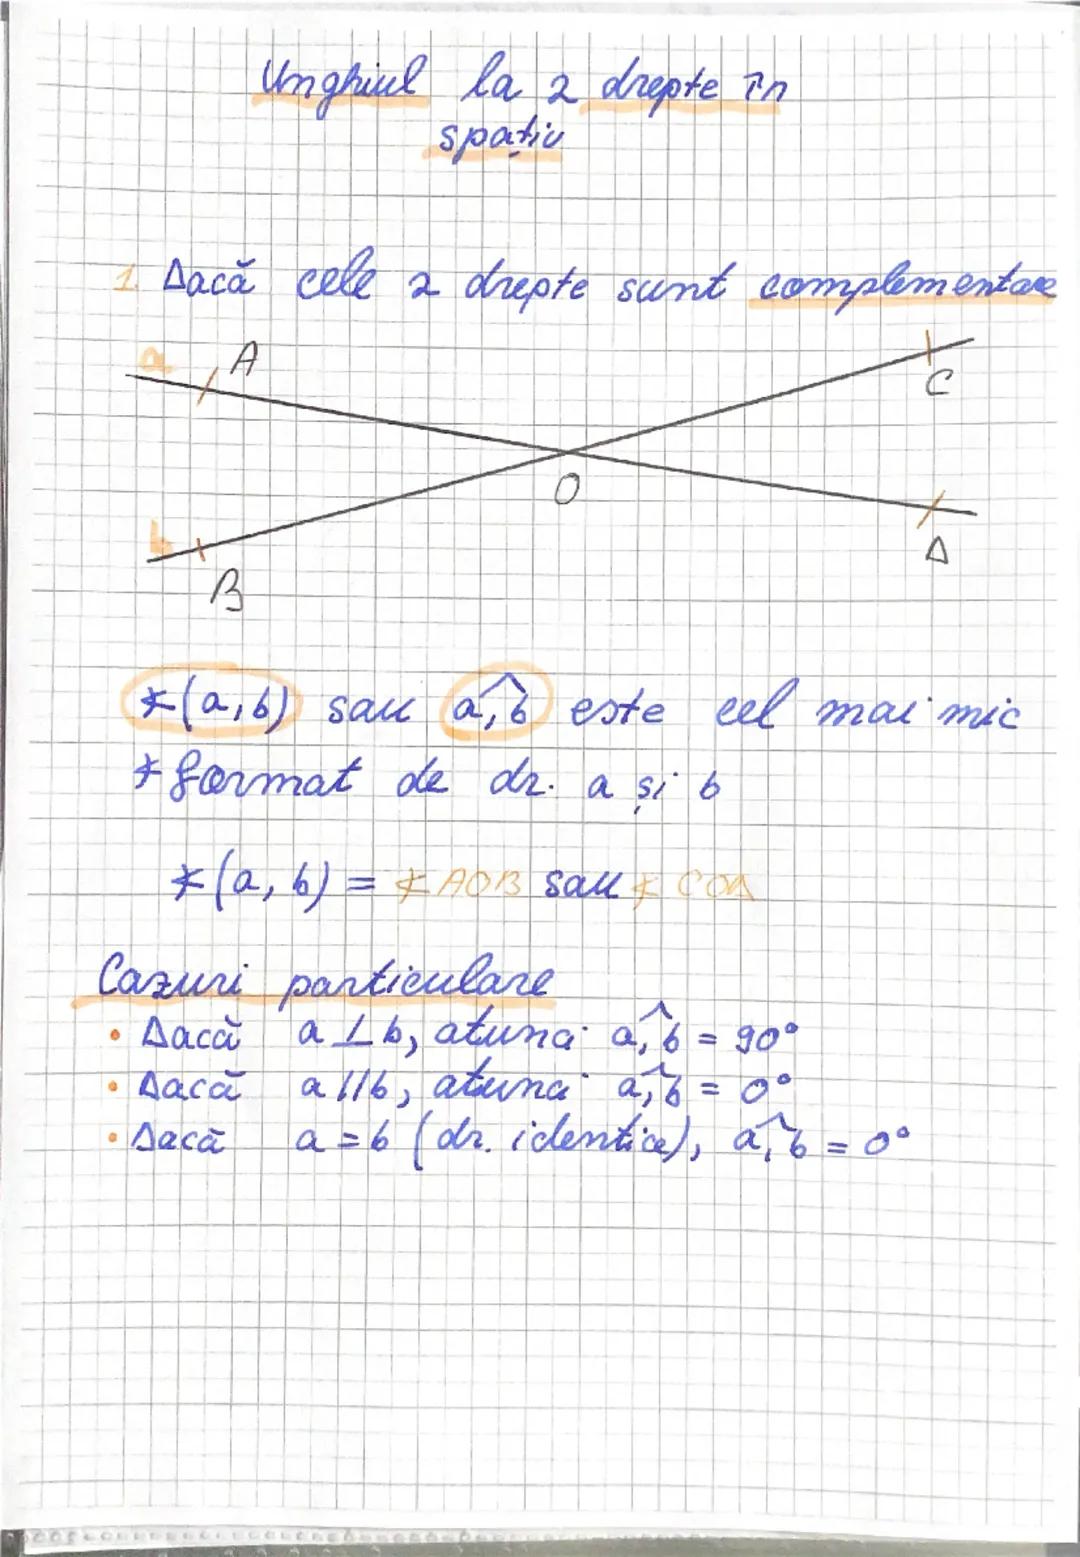 Unghiul la 2 drepte în
spațiu
1. Dacă cele 2 drepte sunt complementare
a A
C
O
b
Δ
B
∢(a,b) sau a,b este cel mai mic
∢ format de dr. a și b
∢(a, b) = ∢ AOB sau ∢ COΔ
Cazuri particulare
• Dacă a ⊥ b, atunci a,b = 90°
• Dacă a || b, atunci a,b = 0°
• Dacă a = b (dr. identice), a,b = 0°